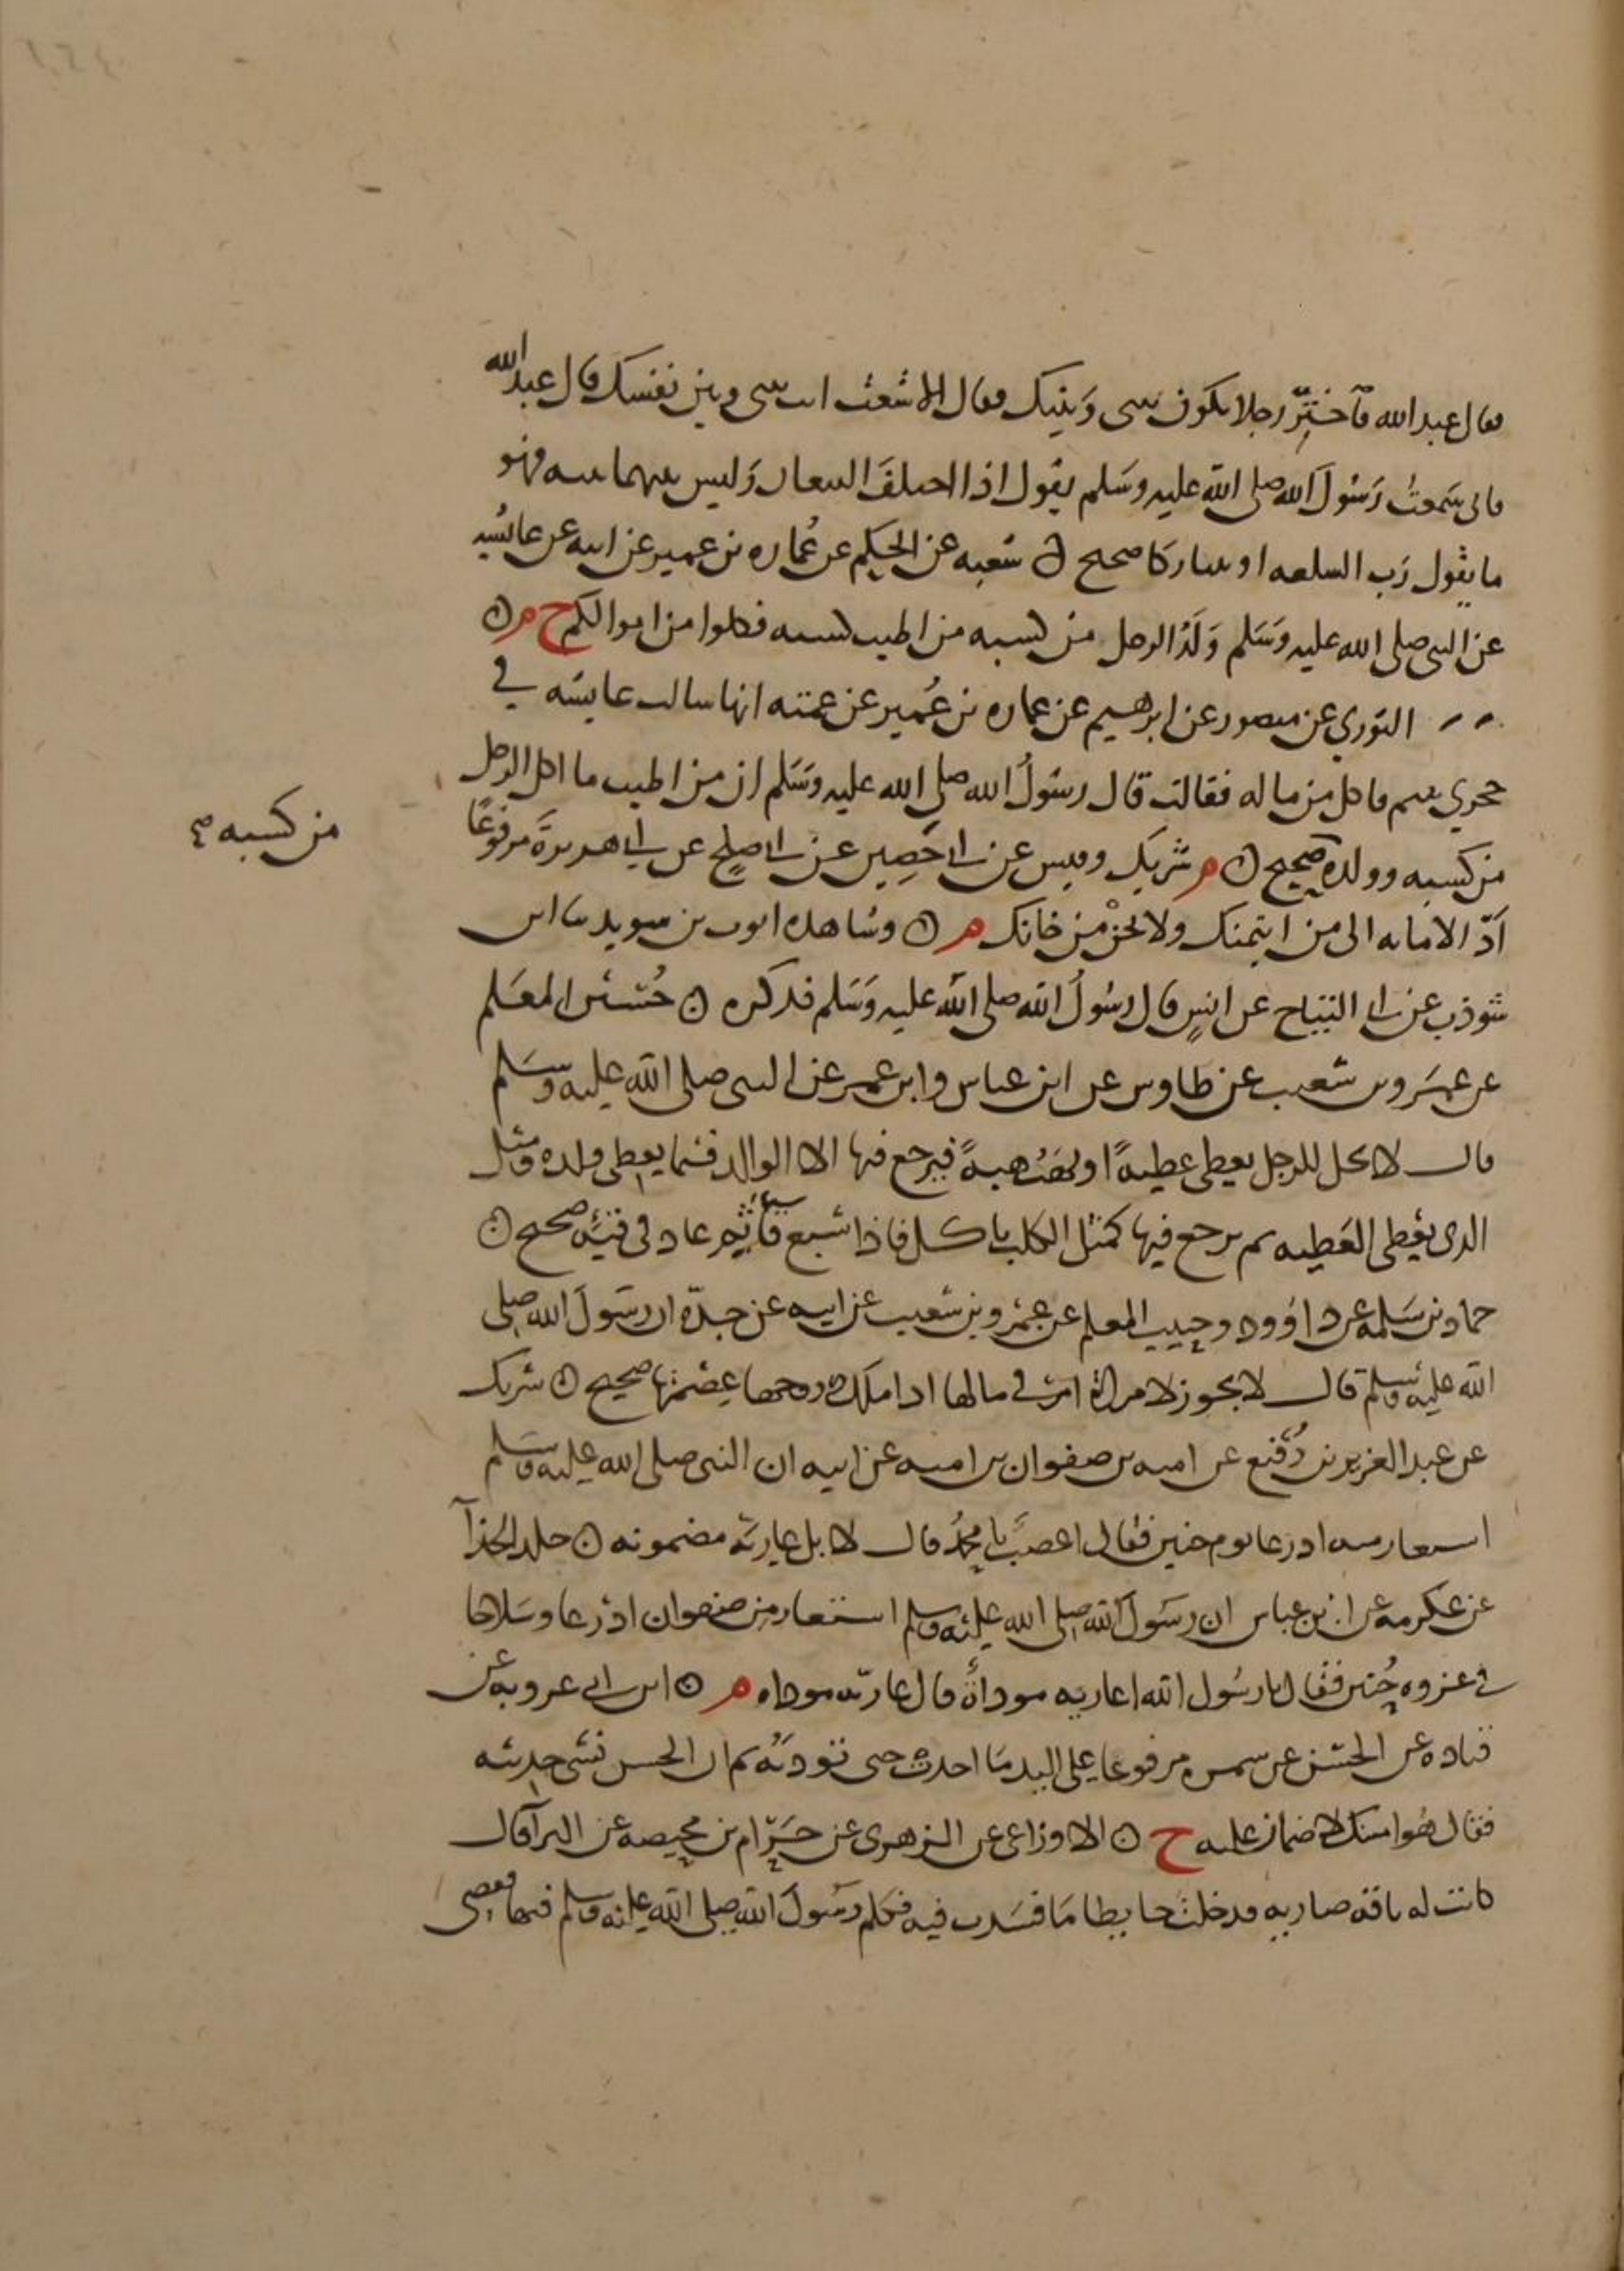 فقال عبد الله فاختر رجلا يكون بيني وبينك فقال الاشعث انت بيني وبين نفسك قال عبد الله
فاني سمعت رسول الله صلى الله عليه وسلم يقول اذا اختلف البيعان وليس بينهما بينه فهو
ما يقول رب السلعه او يتتاركا صحيح ۞ شعبه عن الحكم عن عماره بن عمير عن ابيه عن عائشه
عن النبي صلى الله عليه وسلم ولد الرجل من كسبه من اطيب كسبه فكلوا من اموالكم خ م ۞
الثوري عن منصور عن ابرهيم عن عماره بن عمير عن عمته انها سالت عايشه في
حجري يتيم فاكل من ماله فقالت قال رسول الله صلى الله عليه وسلم ان من اطيب ما اكل الرجل
من كسبه وولده صحيح ۞ م شريك وقيس عن ابي حصين عن ابي صلح عن ابي هريرة مرفوعا
من كسبه صح
أد الامانه الى من ايتمنك ولا تخن من خانك م ۞ وشاهده ايوب بن سويد ثنا ابن
شوذب عن ابي التياح عن انس قال رسول الله صلى الله عليه وسلم فذكره ۞ حسين المعلم
عن عمرو بن شعيب عن طاوس عن ابن عباس وابن عمر عن النبي صلى الله عليه وسلم
قال لا يحل للرجل يعطي عطية او يهب هبة فيرجع فيها الا الوالد فيما يعطي ولده ومثل
الذي يعطي العطيه ثم يرجع فيها كمثل الكلب ياكل فاذا شبع قاء ثم عاد في قيئه صحيح ۞
حماد بن سلمة عن داوود وحبيب المعلم عن عمرو بن شعيب عن ابيه عن جده ان رسول الله صلى
الله عليه وسلم قال لا يجوز لامراة امر في مالها اذا ملك زوجها عصمتها صحيح ۞ شريك
عن عبد العزيز بن رفيع عن اميه بن صفوان بن اميه عن ابيه ان النبي صلى الله عليه وسلم
استعار منه ادرعا يوم حنين فقال اغصب يا محمد قال لا بل عارية مضمونه ۞ خلد الحذآ
عن عكرمه عن ابن عباس ان رسول الله صلى الله عليه وسلم استعار من صفوان ادرعا وسلاحا
في غزوه حنين فقال يا رسول الله اعاريه موداة قال عاريه موداه م ۞ ابن ابي عروبه عن
قتاده عن الحسن عن سمره مرفوعا على اليد ما اخذت حتى تؤديه ثم ان الحسن نسي حديثه
فقال هو امينك لا ضمان عليه خ ۞ الاوزاعي عن الزهري عن حرام بن محيصه عن البرآ قال
كانت له ناقه ضاريه فدخلت حايطا فافسدت فيه فكلم رسول الله صلى الله عليه وسلم فيها فقضى